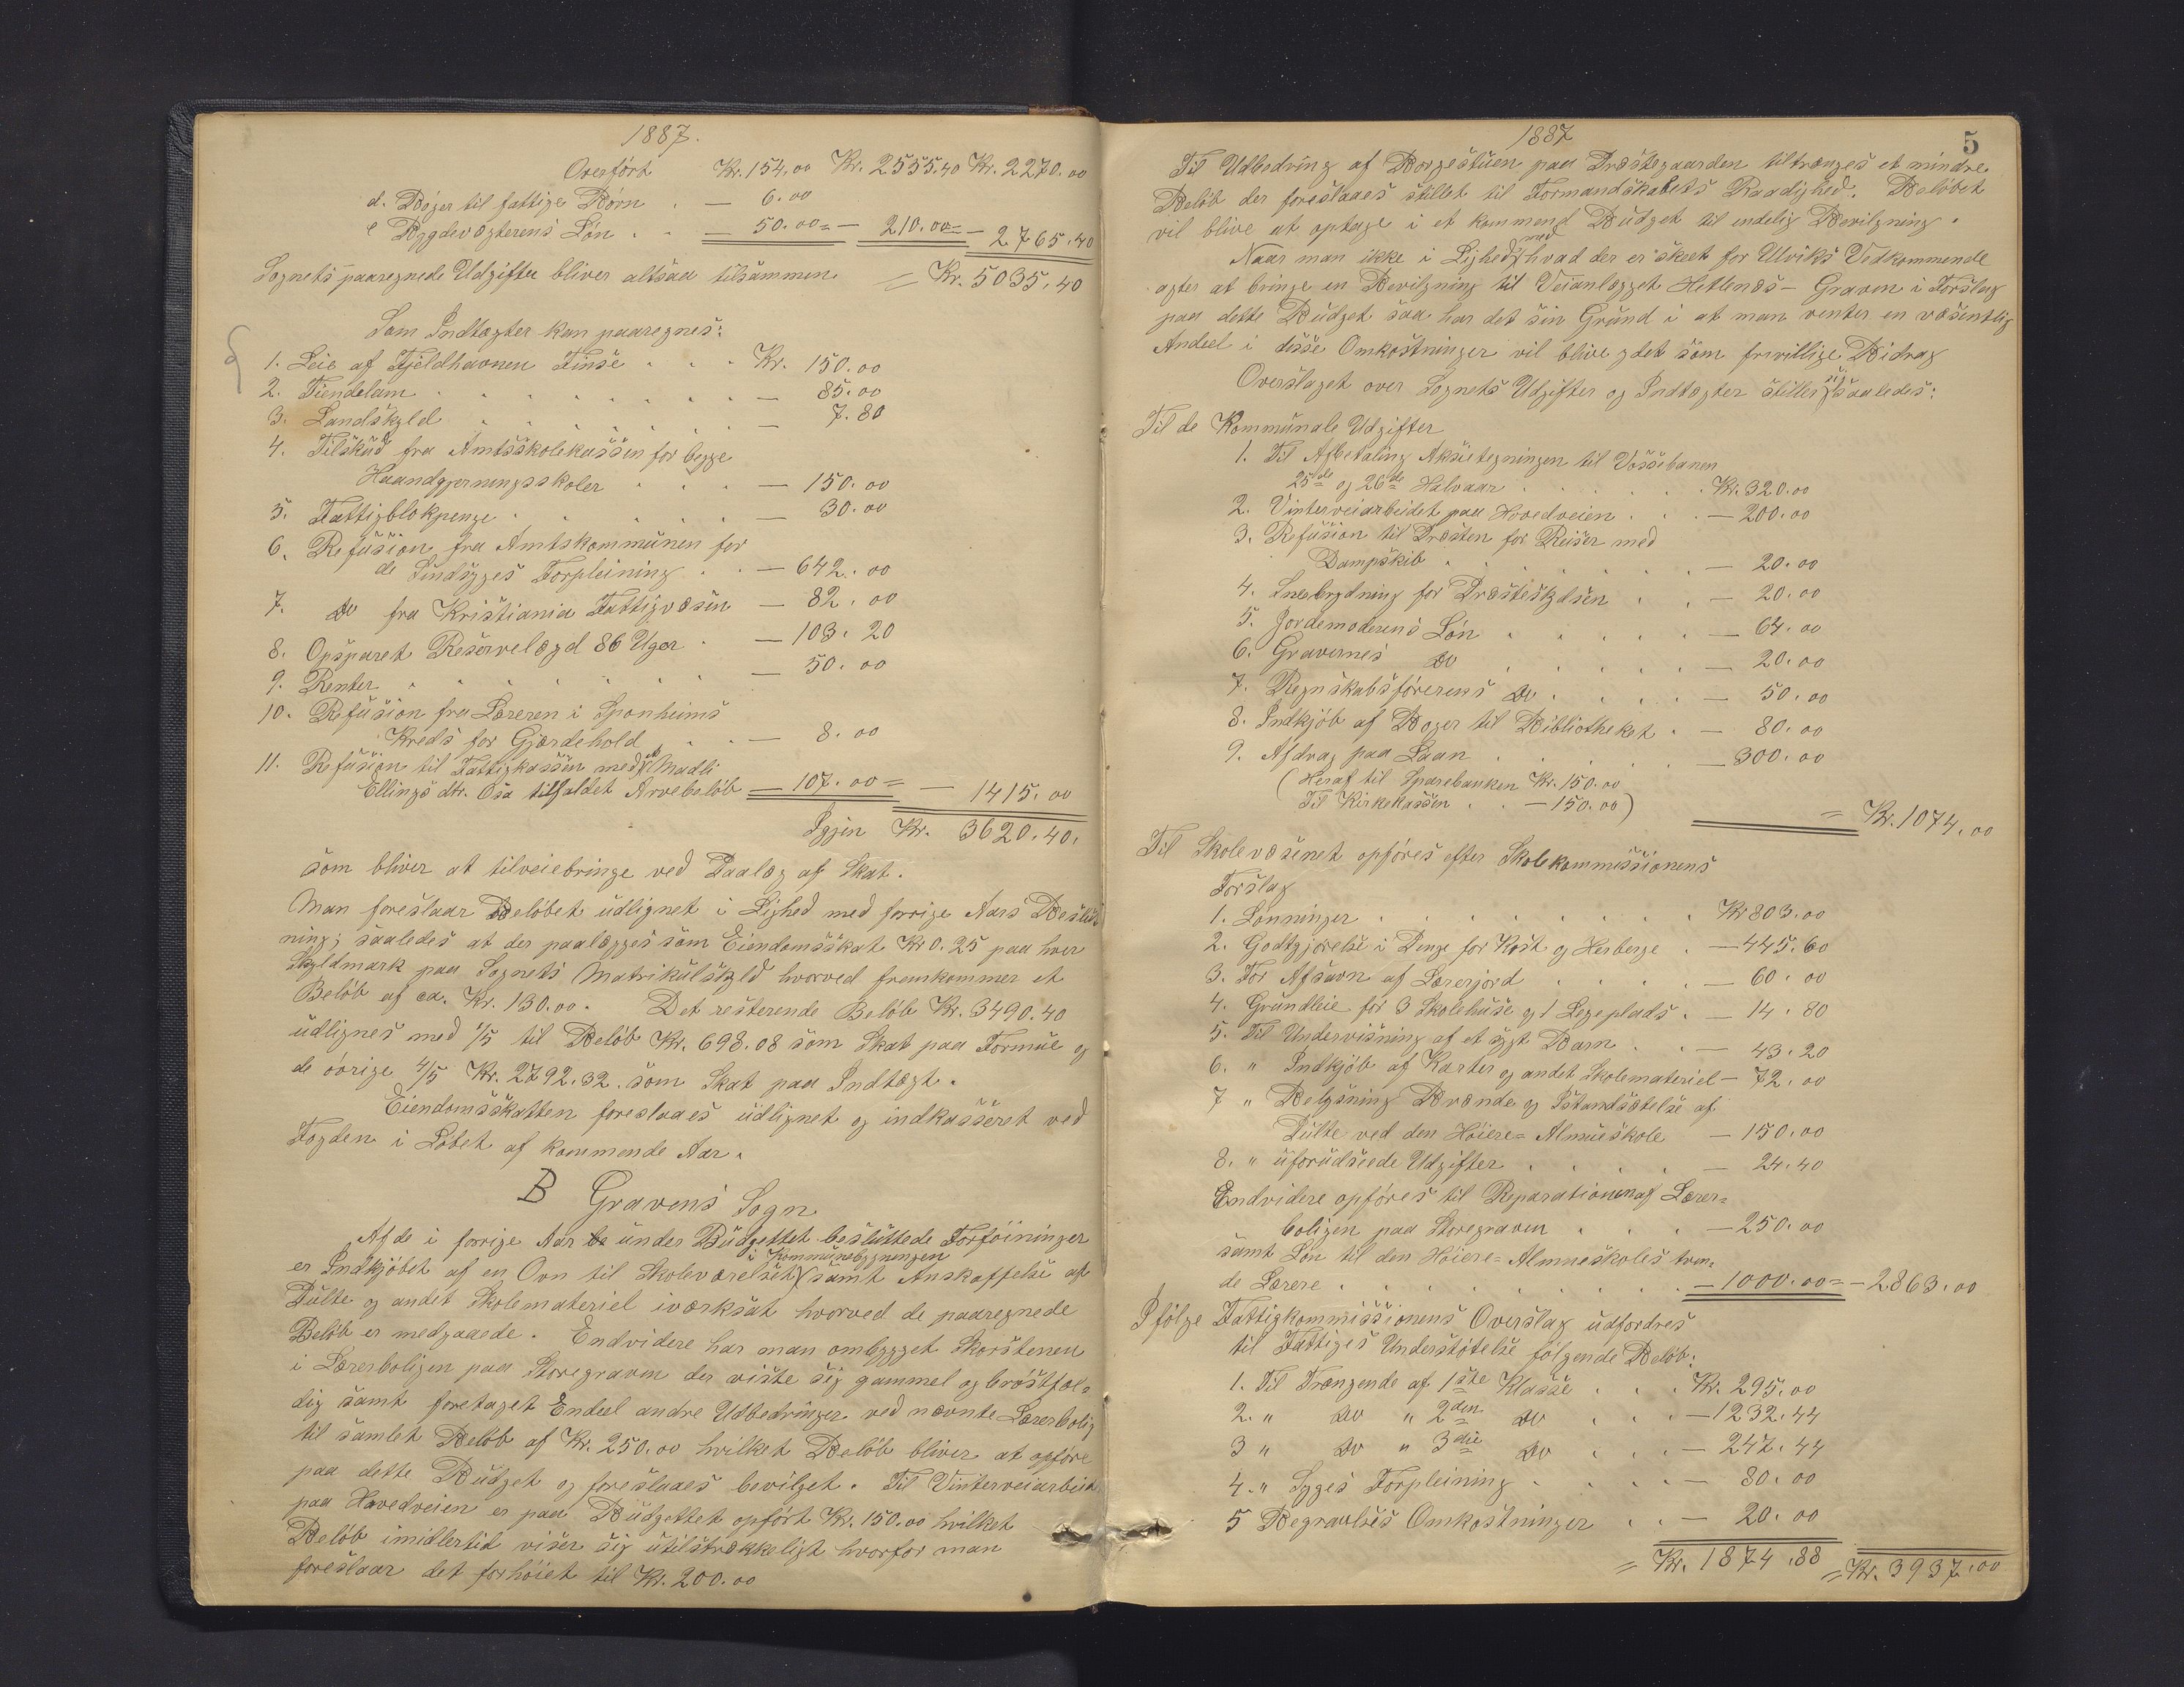 1887.
Overført Kr. 154,00 Kr. 2555,40 Kr. 2270.00
d. Bøger til fattige Børn . — 6.00
e Bygdevægterens Løn . . — 50.00 = — 210.00 = — 2765,40
Sognets paaregnede Udgifter bliver altsaa tilsammen = Kr. 5035,40
Som Indtægter kan paaregnes:
1. Leie af Fjeldhavnen Finse . . . Kr. 150.00
2. Tiendelam . . . . . . . — 85.00
3. Landskyld . . . . . . . — 7.80
4. Tilskud fra Amtsskolekassen for begge
Haandgjerningsskoler . . . . — 150.00
5. Fattigblokpenge . . . . . . — 30.00
6. Refusion fra Amtskommunen for
de Sindsyges Forpleining . . — 642.00
7. do fra Kristiania Fattigvæsen — 82.00
8. Opsparet Reservelægd 86 Uger . — 103.20
9. Renter . . . . . . . — 50.00
10. Refusion fra Læreren i Sponheims
Kreds for Gjærdehold . . — 8.00
11. Refusion til Fattigkassen med et Madli
Ellings dtr. Osa tilfaldet Arvebeløb — 107.00 = — 1415.00
Igjen Kr. 3620.40.
som bliver at tilveiebringe ved Paalæg af Skat.
Man foreslaar Beløbet udlignet i Lighed med forrige Aars Beslut
ning; saaledes at der paalægges som Eiendomsskat Kr 0.25 paa hver
Skyldmark paa Sognets Matrikulskyld hvorved fremkommer et
Beløb af ca. Kr. 130.00. Det resterende Beløb Kr. 3490.40
udlignes med 1/5 til Beløb Kr. 698.08 som Skat paa Formue og
de øvrige 4/5 Kr. 2792.32. som Skat paa Indtægt.
Eiendomsskatten foreslaaes udlignet og indkasseret ved
Fogden i Løbet af kommende Aar.
B Gravens Sogn
Af de i forrige Aar under Budgettet besluttede Forføininger
er Indkjøbet af en Ovn til Skoleværelset i Kommunebygningen samt Anskaffelse af
Pulte og andet Skolemateriel iværksat hvorved de paaregnede
Beløb er medgaaede. Endvidere har man ombygget Skorstenen
i Lærerboligen paa Storegraven der viste sig gammel og brøstfæl=
dig samt foretaget Endeel andre Udbedringer ved nævnte Lærerbolig
til samlet Beløb af Kr. 250.00 hvilket Beløb bliver at opføre
paa dette Budget og foreslaaes bevilget. Til Vinterveiarbeid
paa Hovedveien er paa Budgettet opført Kr. 150.00 hvilket
Beløb imidlertid viser sig utilstrækkeligt hvorfor man
foreslaar det forhøiet til Kr. 200.00
1887
5
Til Udbedring af Borgestuen paa Præstegaarden tiltrænges et mindre
Beløb der foreslaaes stillet til Formandskabets Raadighed. Beløbet
vil blive at optage i et kommend Budget til endelig Bevilgning.
Naar man ikke i Lighed med hvad der er skeet for Ulviks Vedkommende
agter at bringe en Bevilgning til Veianlægget Hetlenæs – Graven i Forslag
paa dette Budget saa har det sin Grund i at man venter en væsentlig
Andeel i disse Omkostninger vil blive ydet som frivillige Bidrag
Overslaget over Sognets Udgifter og Indtægter stiller sig saaledes:
Til de Kommunale Udgifter
1. Til Afbetaling Aksietegningen til Vossebanen
25de og 26de Halvaar . . . . . . Kr. 320.00
2. Vinterveiarbeidet paa Hovedveien . . . — 200.00
3. Refusion til Præsten for Reiser med
Dampskib . . . . . . . — 20.00
4. Snebrydning for Præsteskydsen . . — 20.00
5. Jordemoderens Løn . . . . . — 64.00
6. Gravernes do . . . . . — 20.00
7. Regnskabsførerens do . . . . — 50.00
8. Indkjøb af Bøger til Bibliotheket . — 80.00
9. Afdrag paa Laan . . . . . — 300.00
(Heraf til Sparebanken Kr. 150.00
Til Kirkekassen . . — 150.00)
= Kr. 1074,00
Til Skolevæsenet opføres efter Skolekommissionens
Forslag
1. Lønninger . . . . . . . . . Kr 803.00
2. Godtgjørelse i Penge for Kost og Herberge . — 445.60
3. For Afsavn af Lærerjord . . . . — 60.00
4. Grundleie for 3 Skolehuse og 1 Legeplads . — 14.80
5. Til Undervisning af et sygt Barn . . — 43.20
6. " Indkjøb af Karter og andet Skolemateriel — 72.00
7 " Belysning Brænde og Istandsættelse af
Pulte ved den Høiere= Almueskole — 150.00
8. " uforudseede Udgifter . . . . — 24.40
Endvidere opføres til Reparationen af Lærer=
boligen paa Storegraven . . . — 250.00
samt Løn til den Høiere= Almueskoles tven.
de Lærere . . . . . . . . — 1000.00 = — 2863.00
Ifølge Fattigkommissionens Overslag udfordres
til Fattiges Understøtelse følgende Beløb:
1. Til Trængende af 1ste Klasse . . . Kr. 295.00
2. " do " 2den do . . . — 1232.44
3 " do " 3die do . . . — 247.44
4. " Syges Forpleining . . . . — 80.00
5 Begravelses Omkostninger . . — 20.00
= Kr. 1874.88 = Kr. 3937.00